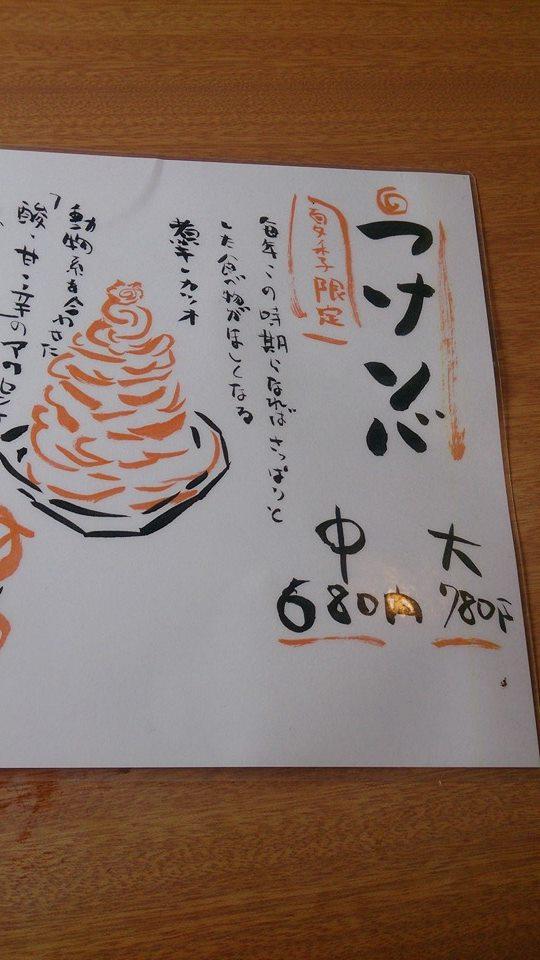 つけソバ
夏季限定
大
780円
中
680円
毎年この時期になればさっぱりと
した食べ物がほしくなる
煮干・カツオ
動物系を合わせた
酸・甘・辛の